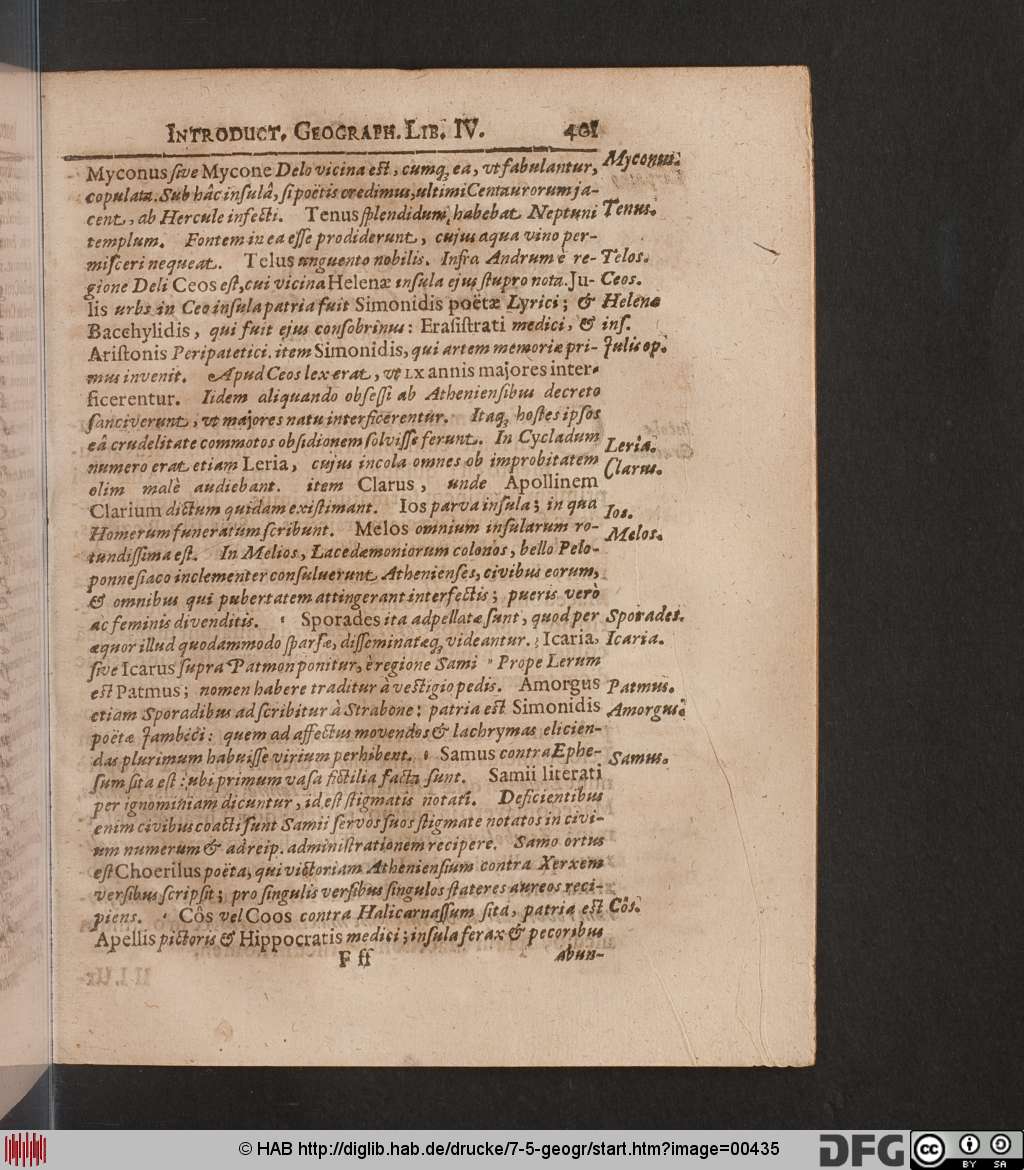 INTRODUCT. GEOGRAPH. LIB. IV. 401
Myconus ſive Mycone Delo vicina eſt, cumq; ea, vt fabulantur, Myconus.
copulata. Sub hâc inſulâ, ſi poëtis credimus, ultimi Centaurorum ja-
cent, ab Hercule infecti. Tenus ſplendidum habebat Neptuni Tenus.
templum. Fontem in ea eſſe prodiderunt, cujus aqua vino per-
miſceri nequeat. Telus unguento nobilis. Infra Andrum è re- Telos.
gione Deli Ceos eſt, cui vicina Helenæ inſula ejus ſtupro nota. Ju- Ceos.
lis urbs in Ceo inſula patria fuit Simonidis poëtæ Lyrici; & Helenæ
Bacchylidis, qui fuit ejus conſobrinus: Eraſiſtrati medici, & inſ.
Ariſtonis Peripatetici. item Simonidis, qui artem memoriæ pri- Julis op.
mus invenit. Apud Ceos lex erat, vt LX annis majores inter-
ficerentur. Iidem aliquando obſeſſi ab Athenienſibus decreto
ſanciverunt, vt majores natu interficerentur. Itaq; hoſtes ipſos
eâ crudelitate commotos obſidionem ſolviſſe ferunt. In Cycladum
numero erat etiam Leria, cujus incola omnes ob improbitatem Leria.
olim malè audiebant. item Clarus, unde Apollinem Clarus.
Clarium dictum quidam exiſtimant. Ios parva inſula; in qua Ios.
Homerum funeratum ſcribunt. Melos omnium inſularum ro- Melos.
tundiſſima eſt. In Melios, Lacedæmoniorum colonos, bello Pelo-
ponneſiaco inclementer conſuluerunt Athenienſes, civibus eorum,
& omnibus qui pubertatem attingerant interfectis; pueris verò
ac feminis divenditis. Sporades ita adpellatæ ſunt, quod per Sporades.
æquor illud quodammodo ſparſæ, diſſeminatæq; videantur. Icaria, Icaria.
ſive Icarus ſupra Patmon ponitur, è regione Sami Prope Lerum
eſt Patmus; nomen habere traditur à veſtigio pedis. Amorgus Patmus.
etiam Sporadibus adſcribitur à Strabone: patria eſt Simonidis Amorgus.
poëtæ Jambici: quem ad affectus movendos & lachrymas elicien-
das plurimum habuiſſe virium perhibent. Samus contra Ephe- Samus.
ſum ſita eſt: ubi primum vaſa fictilia facta ſunt. Samii literati
per ignominiam dicuntur, id eſt ſtigmatis notati. Deficientibus
enim civibus coacti ſunt Samii ſervos ſuos ſtigmate notatos in civi-
um numerum & ad reip. adminiſtrationem recipere. Samo ortus
eſt Choerilus poëta, qui victoriam Athenienſium contra Xerxem
verſibus ſcripſit; pro ſingulis verſibus ſingulos ſtateres aureos reci-
piens. Côs vel Coos contra Halicarnaſſum ſita, patria eſt Côs.
Apellis pictoris & Hippocratis medici; inſula ferax & pecoribus
F ff abun-
© HAB http://diglib.hab.de/drucke/7-5-geogr/start.htm?image=00435
DFG
cc BY SA